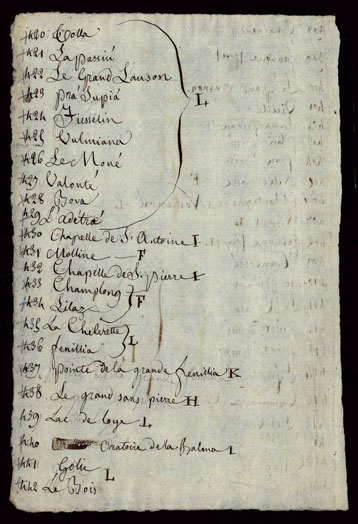 420 Colla
421 Lapassiú
422 Le Grand Lauson
423 prá Supiá L
424 Jusselin
425 Vulmiana
426 Le Moné
427 Valonté
428 Bova
429 L'adétré
430 Chapelle de St. Antoine I
431 Molline — F
432 Chapelle de St. Pierre F
433 Champlong F
434 Lilaz
435 La Cheterette L
436 fenillia
437 Pointe de la grande fenillia K
438 Le grand sans pierre H
439 Lac de loye L
440 Oratoire de la Balma L
441 L
442 Le Bois